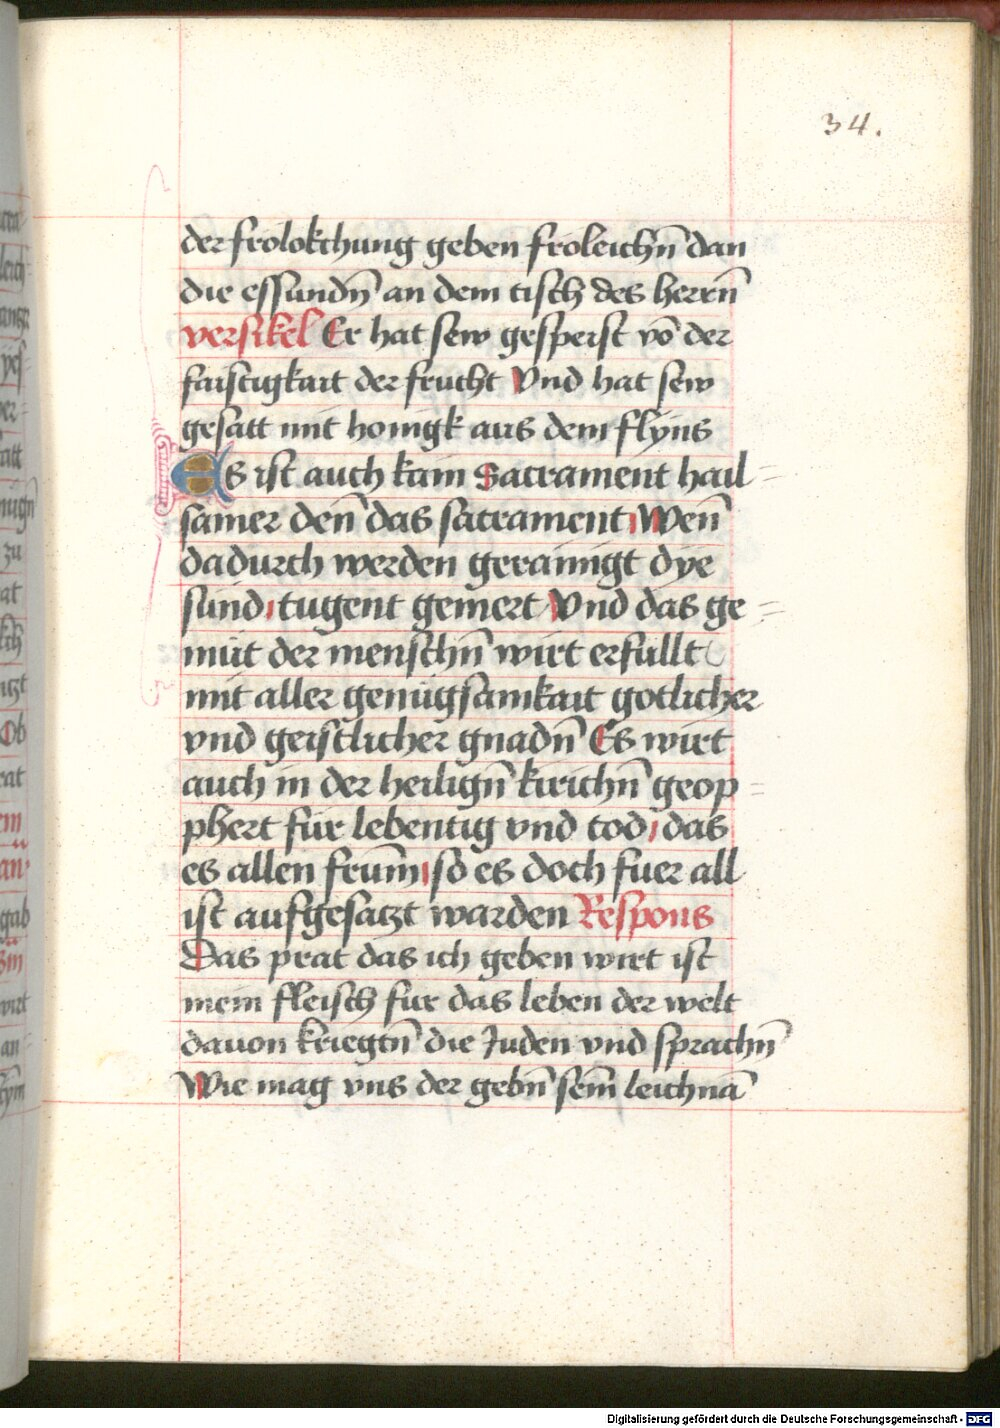 34.
der frolokchung geben froleichn̄ dan
die essundn̄ an dem tisch des herrn̄
versikel Er hat sew gespeist vō der
faistigkait der frucht Vnd hat sew
gesatt mit honigk aus dem flyns
Es ist auch kain Sacrament hail=
samer den̄ das sacrament Wen̄
dadurch werden gerainigt dye
sund, tugent gemert Vnd das ge=
müt der menschn̄ wirt erfullt
mit aller genügsamkait gotlicher
vnd geistlicher gnadn̄ Es wirt
auch in der heilign̄ kirichn̄ geop=
phert für lebentig vnd tod, das
es allen frum̄ so es doch fuer all
ist aufgesatzt warden Respons
Das prat das ich geben wirt ist
mein fleisch fur das leben der welt
dauon kriegtn̄ die Juden vnd sprachn̄
Wie mag vns der gebn̄ sein̄ leichnā
Digitalisierung gefördert durch die Deutsche Forschungsgemeinschaft - DFG